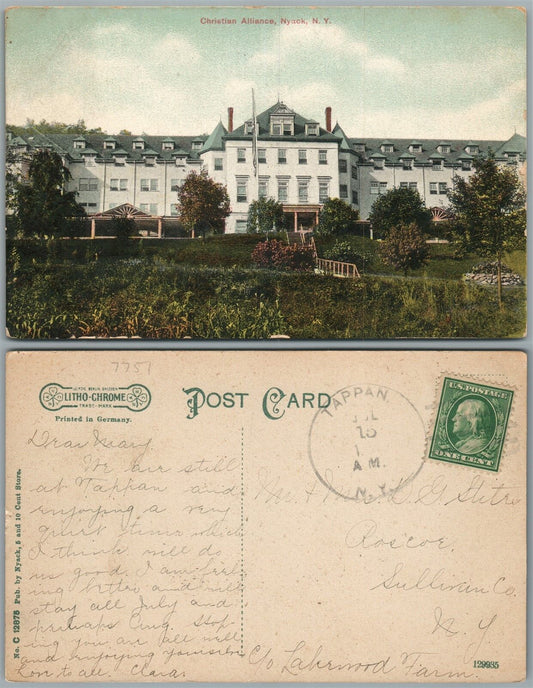 Christian Alliance, Nyack, N. Y.
7751
LEIPZIG, BERLIN, DRESDEN
LITHO-CHROME
TRADE-MARK
Printed in Germany.
POST CARD
TAPPAN
JUL
10
1
A M.
N.Y.
U.S. POSTAGE
ONE CENT
No. C 12875 Pub. by Nyack, 5 and 10 Cent Store.
Dear Mary
We are still
at Tappan and
enjoying a very
quiet time which
I think will do
us good. I am feel-
ing better and will
stay all July and
perhaps Aug. Hop-
ing you are all well
and enjoying yourselves
Love to all. Clara.
Mr & Mrs G
Roscoe,
Sullivan Co.
N.Y.
c/o Lakewood Farm.
129935